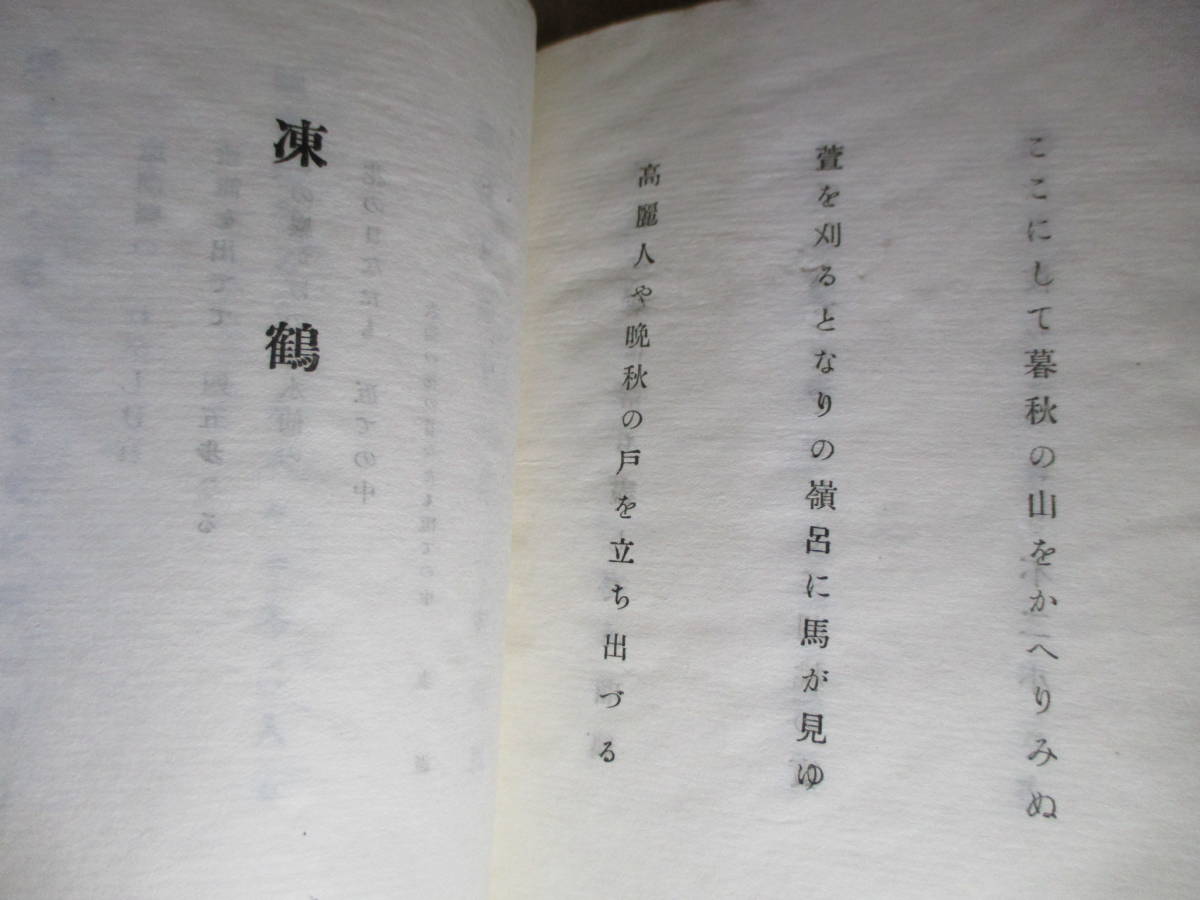 ここにして暮秋の山をかへりみぬ
萱を刈るとなりの嶺呂に馬が見ゆ
高麗人や晩秋の戸を立ち出づる
凍鶴